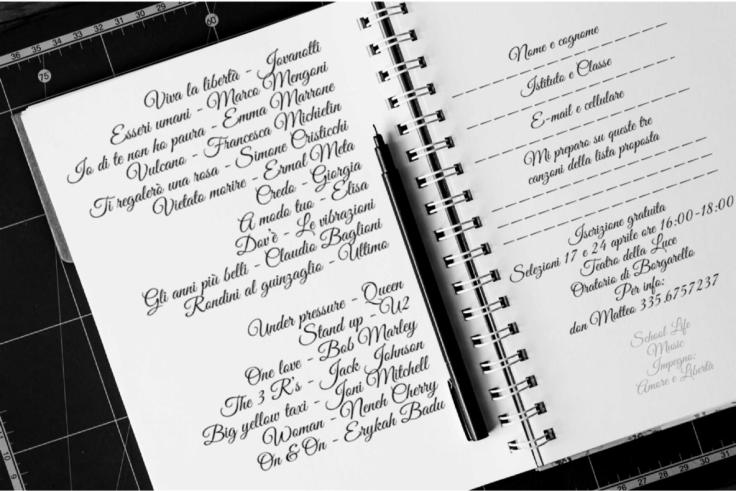 Viva la libertà - Jovanotti
Esseri umani - Marco Mengoni
Io di te non ho paura - Emma Marrone
Vulcano - Francesca Michielin
Ti regalerò una rosa - Simone Cristicchi
Vietato morire - Ermal Meta
Credo - Giorgia
A modo tuo - Elisa
Dov'è - Le vibrazioni
Gli anni più belli - Claudio Baglioni
Rondini al guinzaglio - Ultimo
Under pressure - Queen
Stand up - U2
One love - Bob Marley
The 3 R's - Jack Johnson
Big yellow taxi - Joni Mitchell
Woman - Neneh Cherry
On & On - Erykah Badu
Nome e cognome
Istituto e Classe
E-mail e cellulare
Mi preparo su queste tre
canzoni della lista proposta
Iscrizione gratuita
Selezioni 17 e 24 aprile ore 16:00-18:00
Teatro della Luce
Oratorio di Borgaretto
Per info:
don Matteo 335.6757237
School Life
Music
Impegno:
Amore e Libertà
36 35 34 33 32 31
60
75